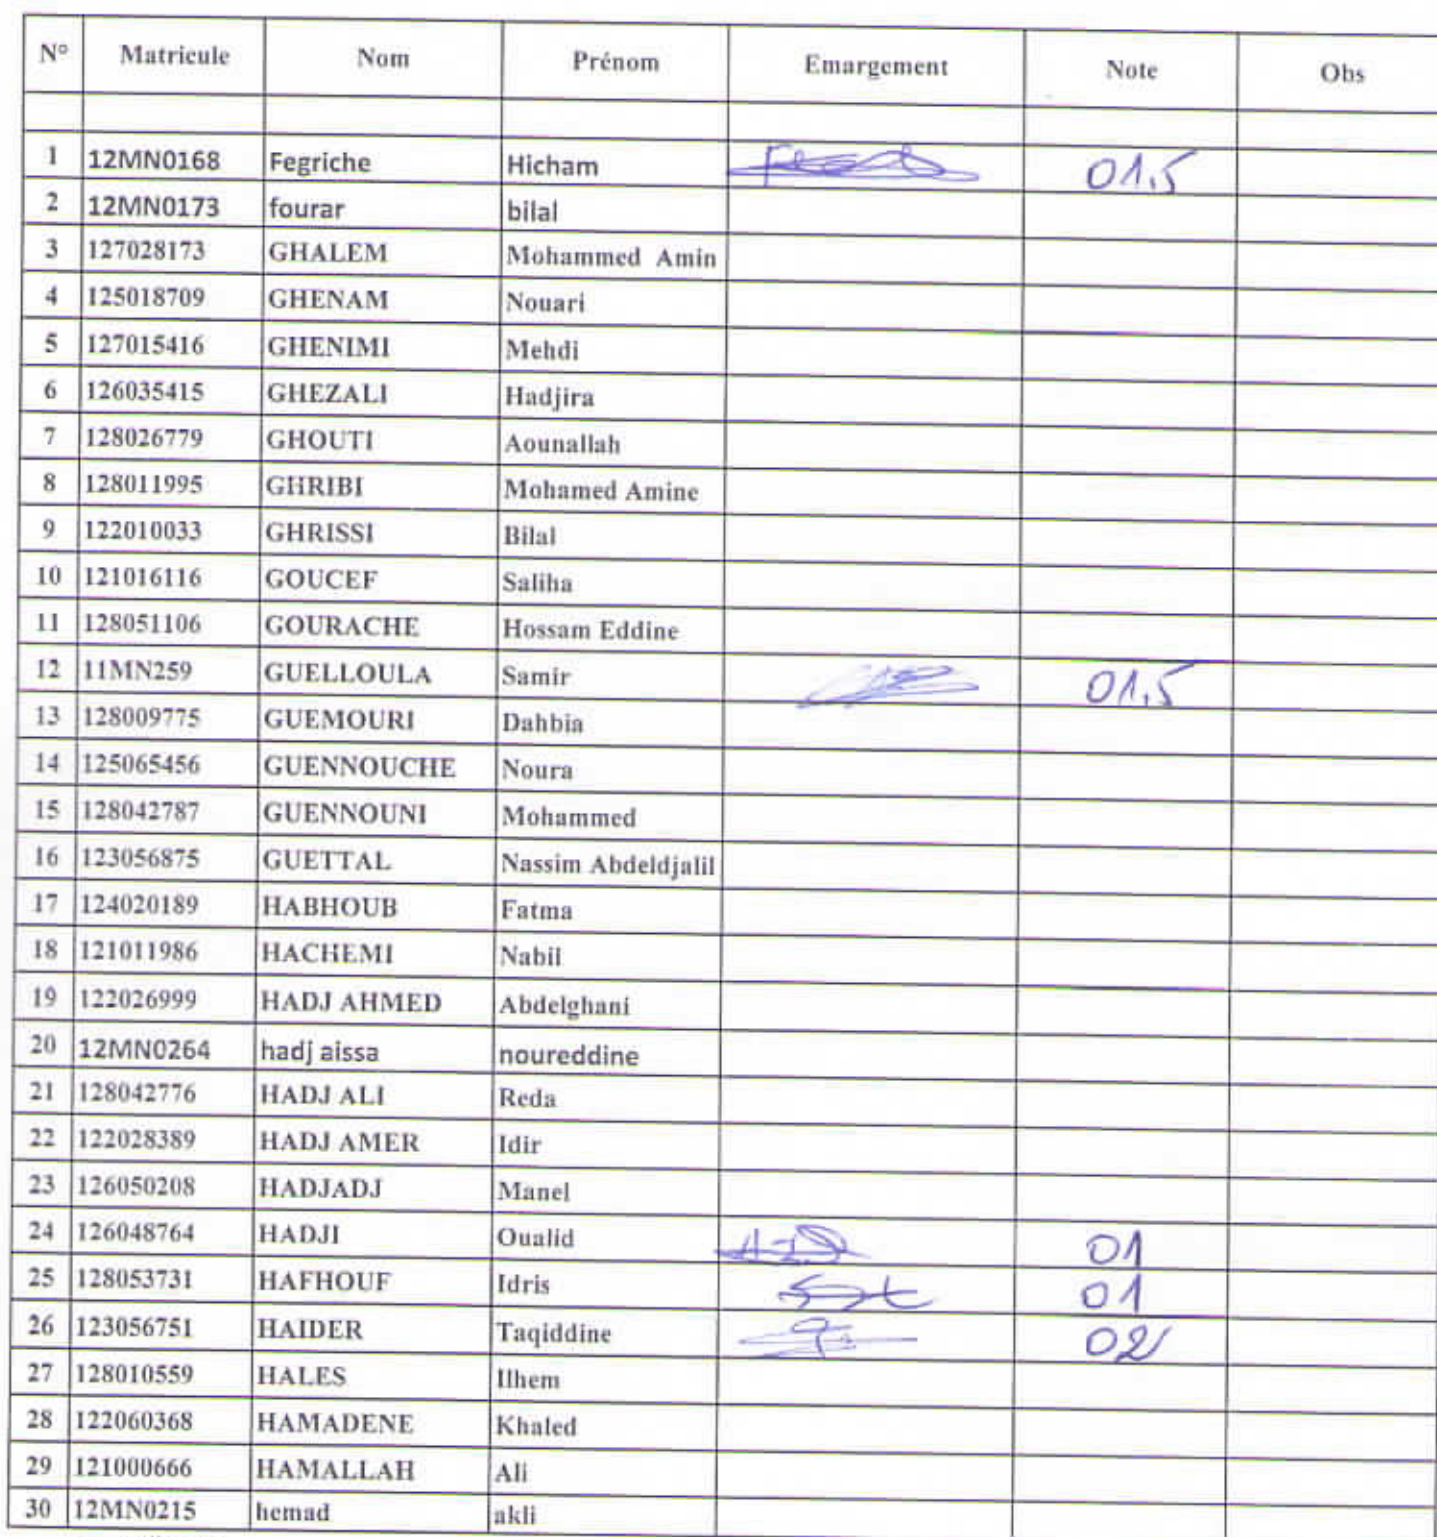 N° Matricule Nom Prénom Emargement Note Obs
1 12MN0168 Fegriche Hicham 01.5
2 12MN0173 fourar bilal
3 127028173 GHALEM Mohammed Amin
4 125018709 GHENAM Nouari
5 127015416 GHENIMI Mehdi
6 126035415 GHEZALI Hadjira
7 128026779 GHOUTI Aounallah
8 128011995 GHRIBI Mohamed Amine
9 122010033 GHRISSI Bilal
10 121016116 GOUCEF Saliha
11 128051106 GOURACHE Hossam Eddine
12 11MN259 GUELLOULA Samir 01.5
13 128009775 GUEMOURI Dahbia
14 125065456 GUENNOUCHE Noura
15 128042787 GUENNOUNI Mohammed
16 123056875 GUETTAL Nassim Abdeldjalil
17 124020189 HABHOUB Fatma
18 121011986 HACHEMI Nabil
19 122026999 HADJ AHMED Abdelghani
20 12MN0264 hadj aissa noureddine
21 128042776 HADJ ALI Reda
22 122028389 HADJ AMER Idir
23 126050208 HADJADJ Manel
24 126048764 HADJI Oualid 01
25 128053731 HAFHOUF Idris 01
26 123056751 HAIDER Taqiddine 02
27 128010559 HALES Ilhem
28 122060368 HAMADENE Khaled
29 121000666 HAMALLAH Ali
30 12MN0215 hemad akli